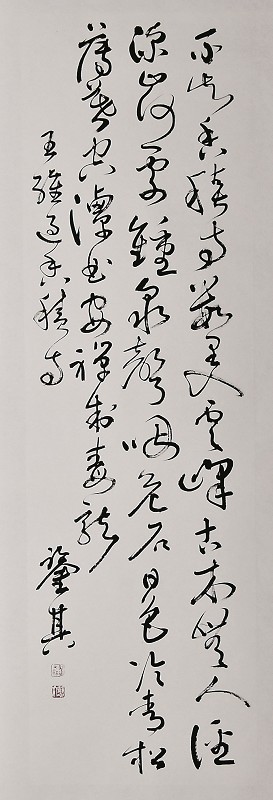 不知香積寺數里入雲峰古木無人徑
深山何處鐘泉聲咽危石日色冷青松
薄暮空潭曲安禪制毒龍
王維過香積寺
其